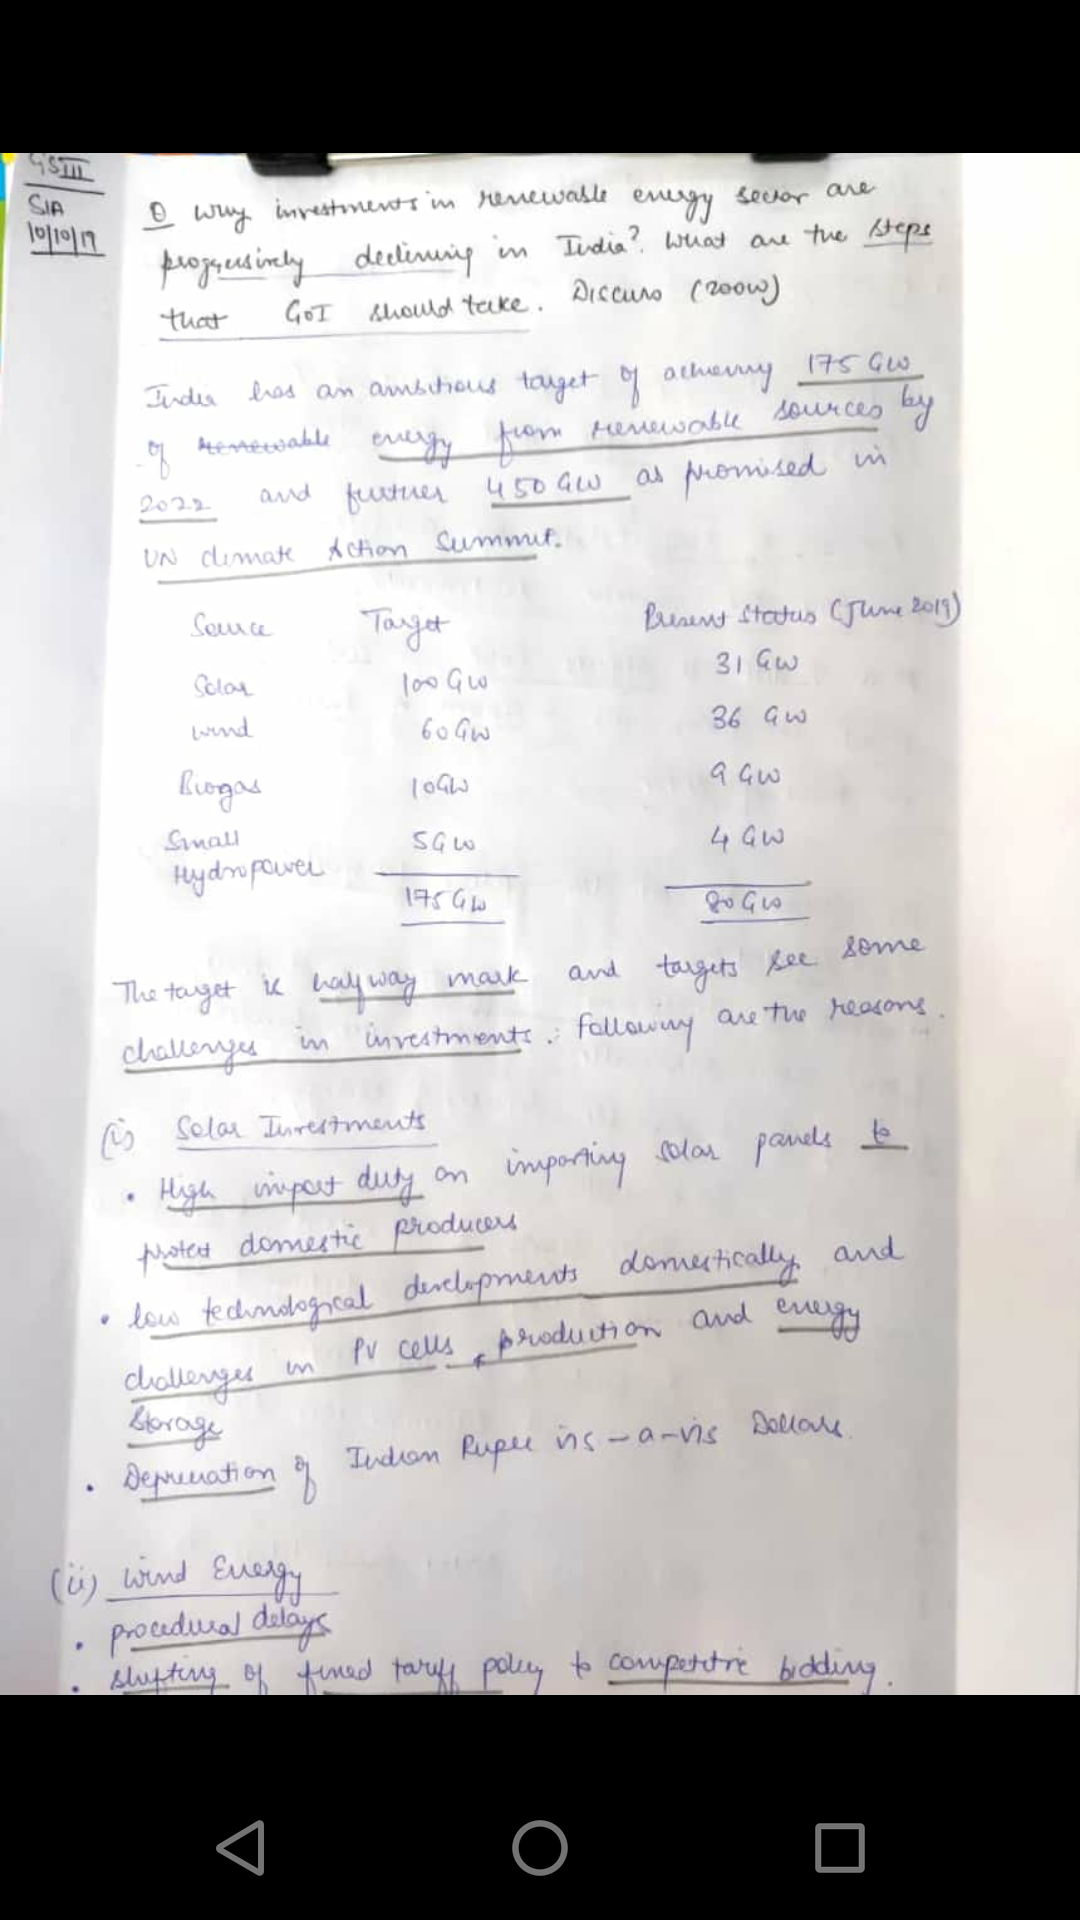 GSIII
SIA
10/10/19
Q Why investments in renewable energy sector are
progressively declining in India? What are the steps
that GoI should take. Discuss (200w)
India has an ambitious target of achieving 175 GW
of renewable energy from renewable sources by
2022 and further 450 GW as promised in
UN climate Action Summit.
Source Target Present Status (June 2019)
Solar 100 GW 31 GW
Wind 60 GW 36 GW
Biogas 10 GW 9 GW
Small
Hydropower 5 GW 4 GW
175 GW 80 GW
The target is halfway mark and targets see some
challenges in investments. Following are the reasons.
(i) Solar Investments
• High import duty on importing solar panels to
protect domestic producers
• low technological developments domestically and
challenges in PV cells production and energy
storage
• Depreciation of Indian Rupee vis-a-vis Dollars.
(ii) Wind Energy
• procedural delays
• shifting of fixed tariff policy to competitive bidding.